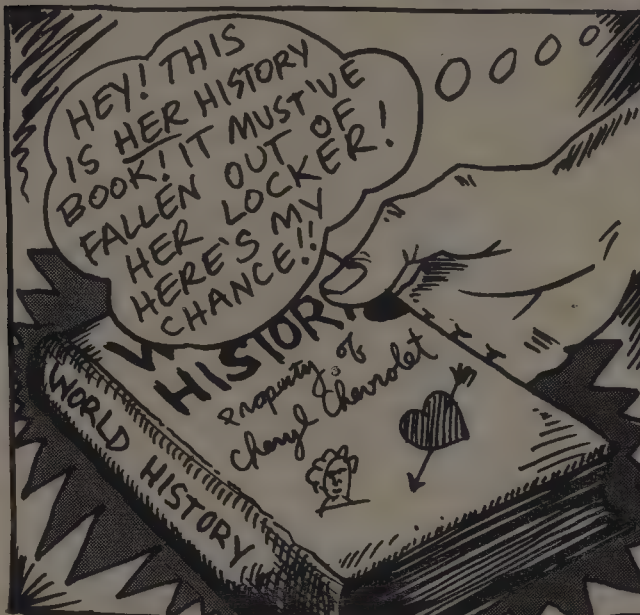 HEY! THIS
IS HER HISTORY
BOOK! IT MUST'VE
FALLEN OUT OF
HER LOCKER!
HERE'S MY
CHANCE!!
HISTORY
Property of
Cheryl Chevrolet
WORLD HISTORY